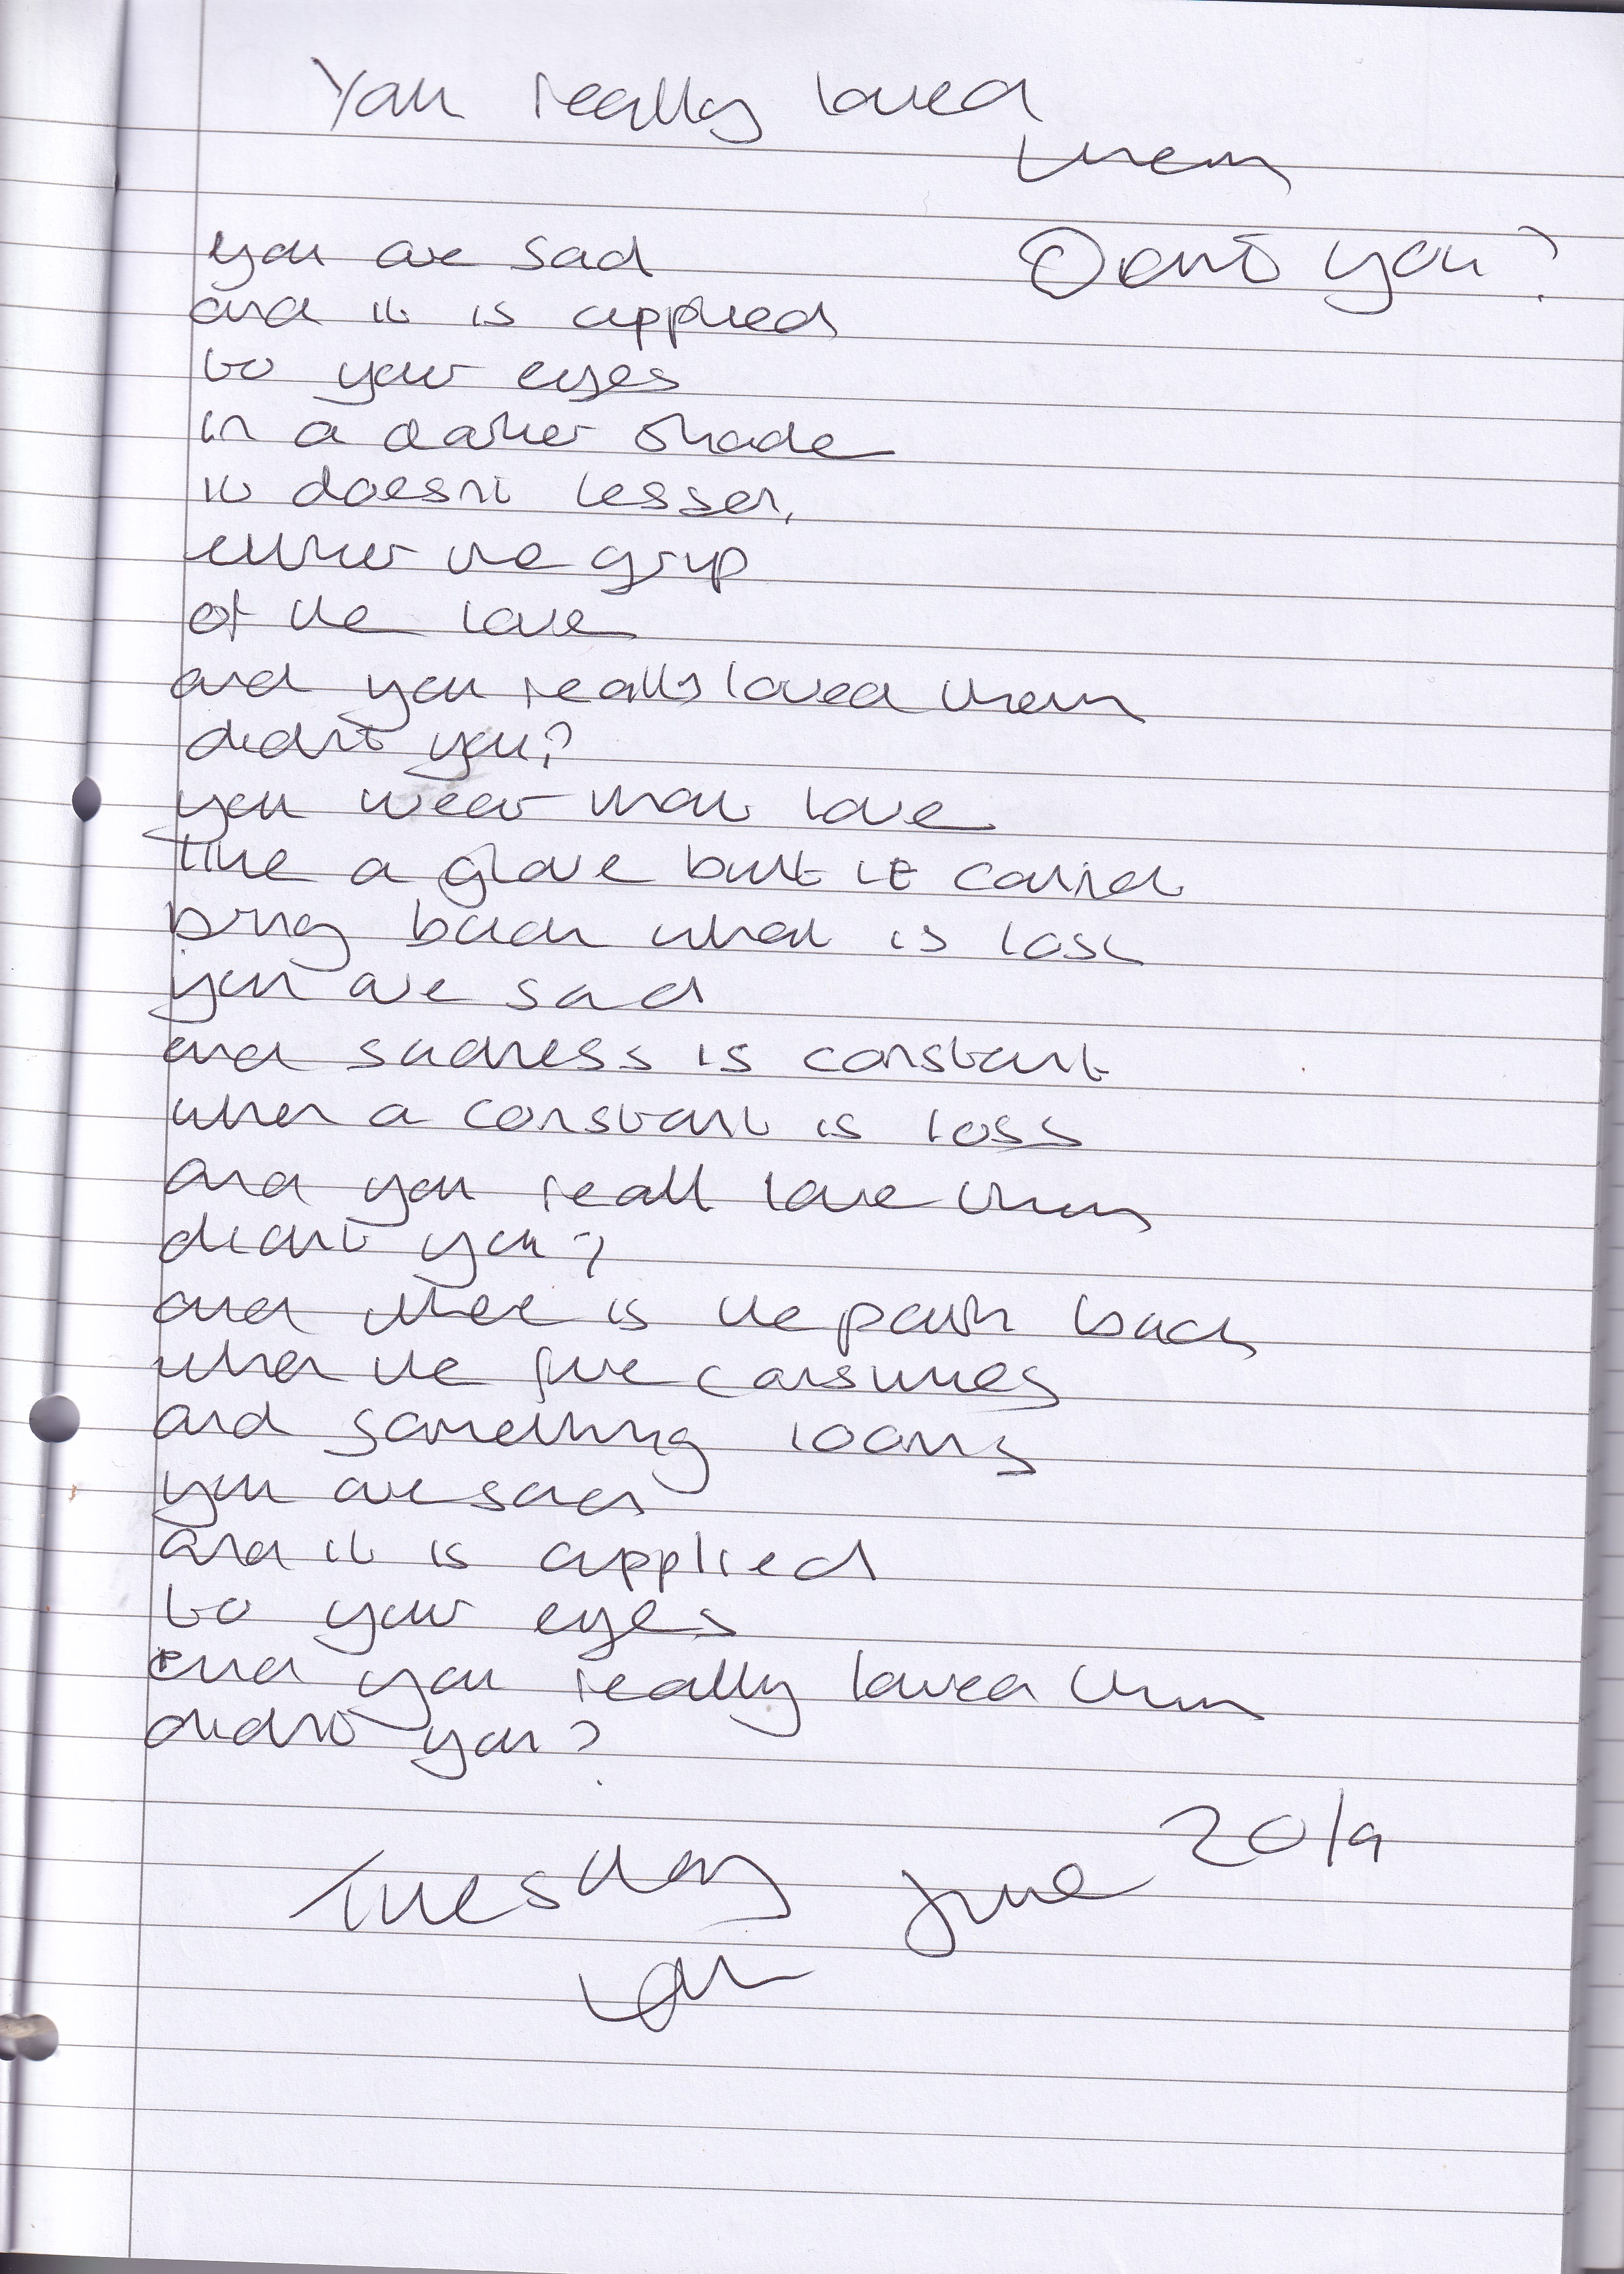 You really loved
them
Don't you?
you are sad
and it is applied
to your eyes
in a darker shade
it doesnt lessen,
either the grip
of the love
and you really loved them
didnt you?
you wear that love
like a glove but it
bring back what is lost
you are sad
and sadness is constant
when a constant is loss
and you reall love them
didnt you?
and there is the path back
when the fire consumes
and something looms
you are sad
and it is applied
to your eyes
and you really loved them
didnt you?
Tuesday June 2019